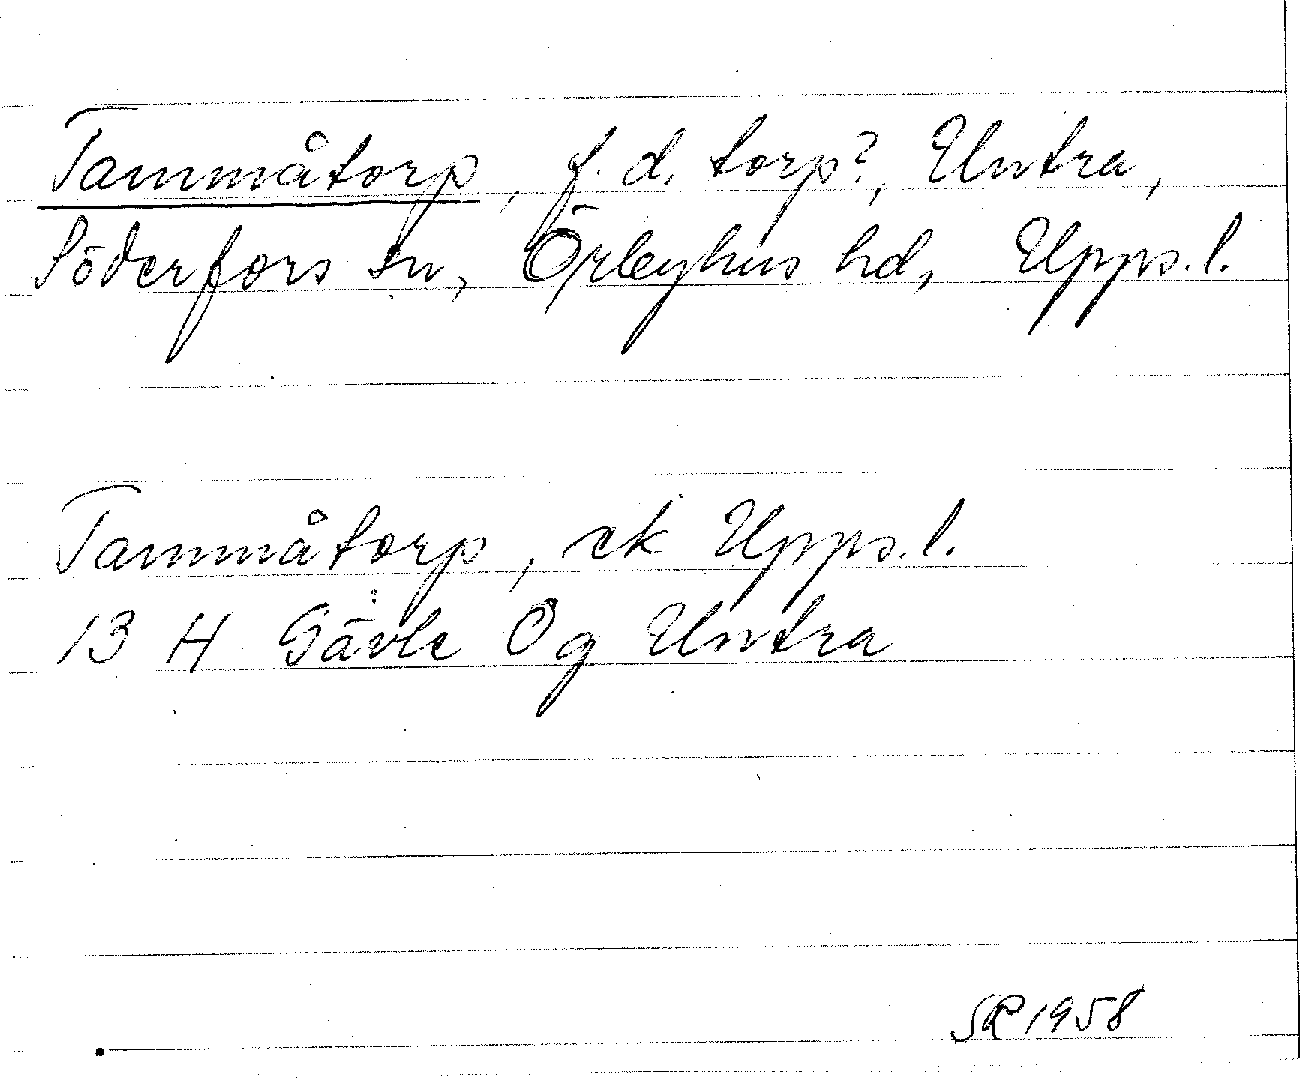 Tammåtorp, f.d. torp?, Untra,
Söderfors sn, Örbyhus hd, Upps. l.
Tammåtorp, ek Upps. l.
13 H Gävle Og Untra
SR 1958